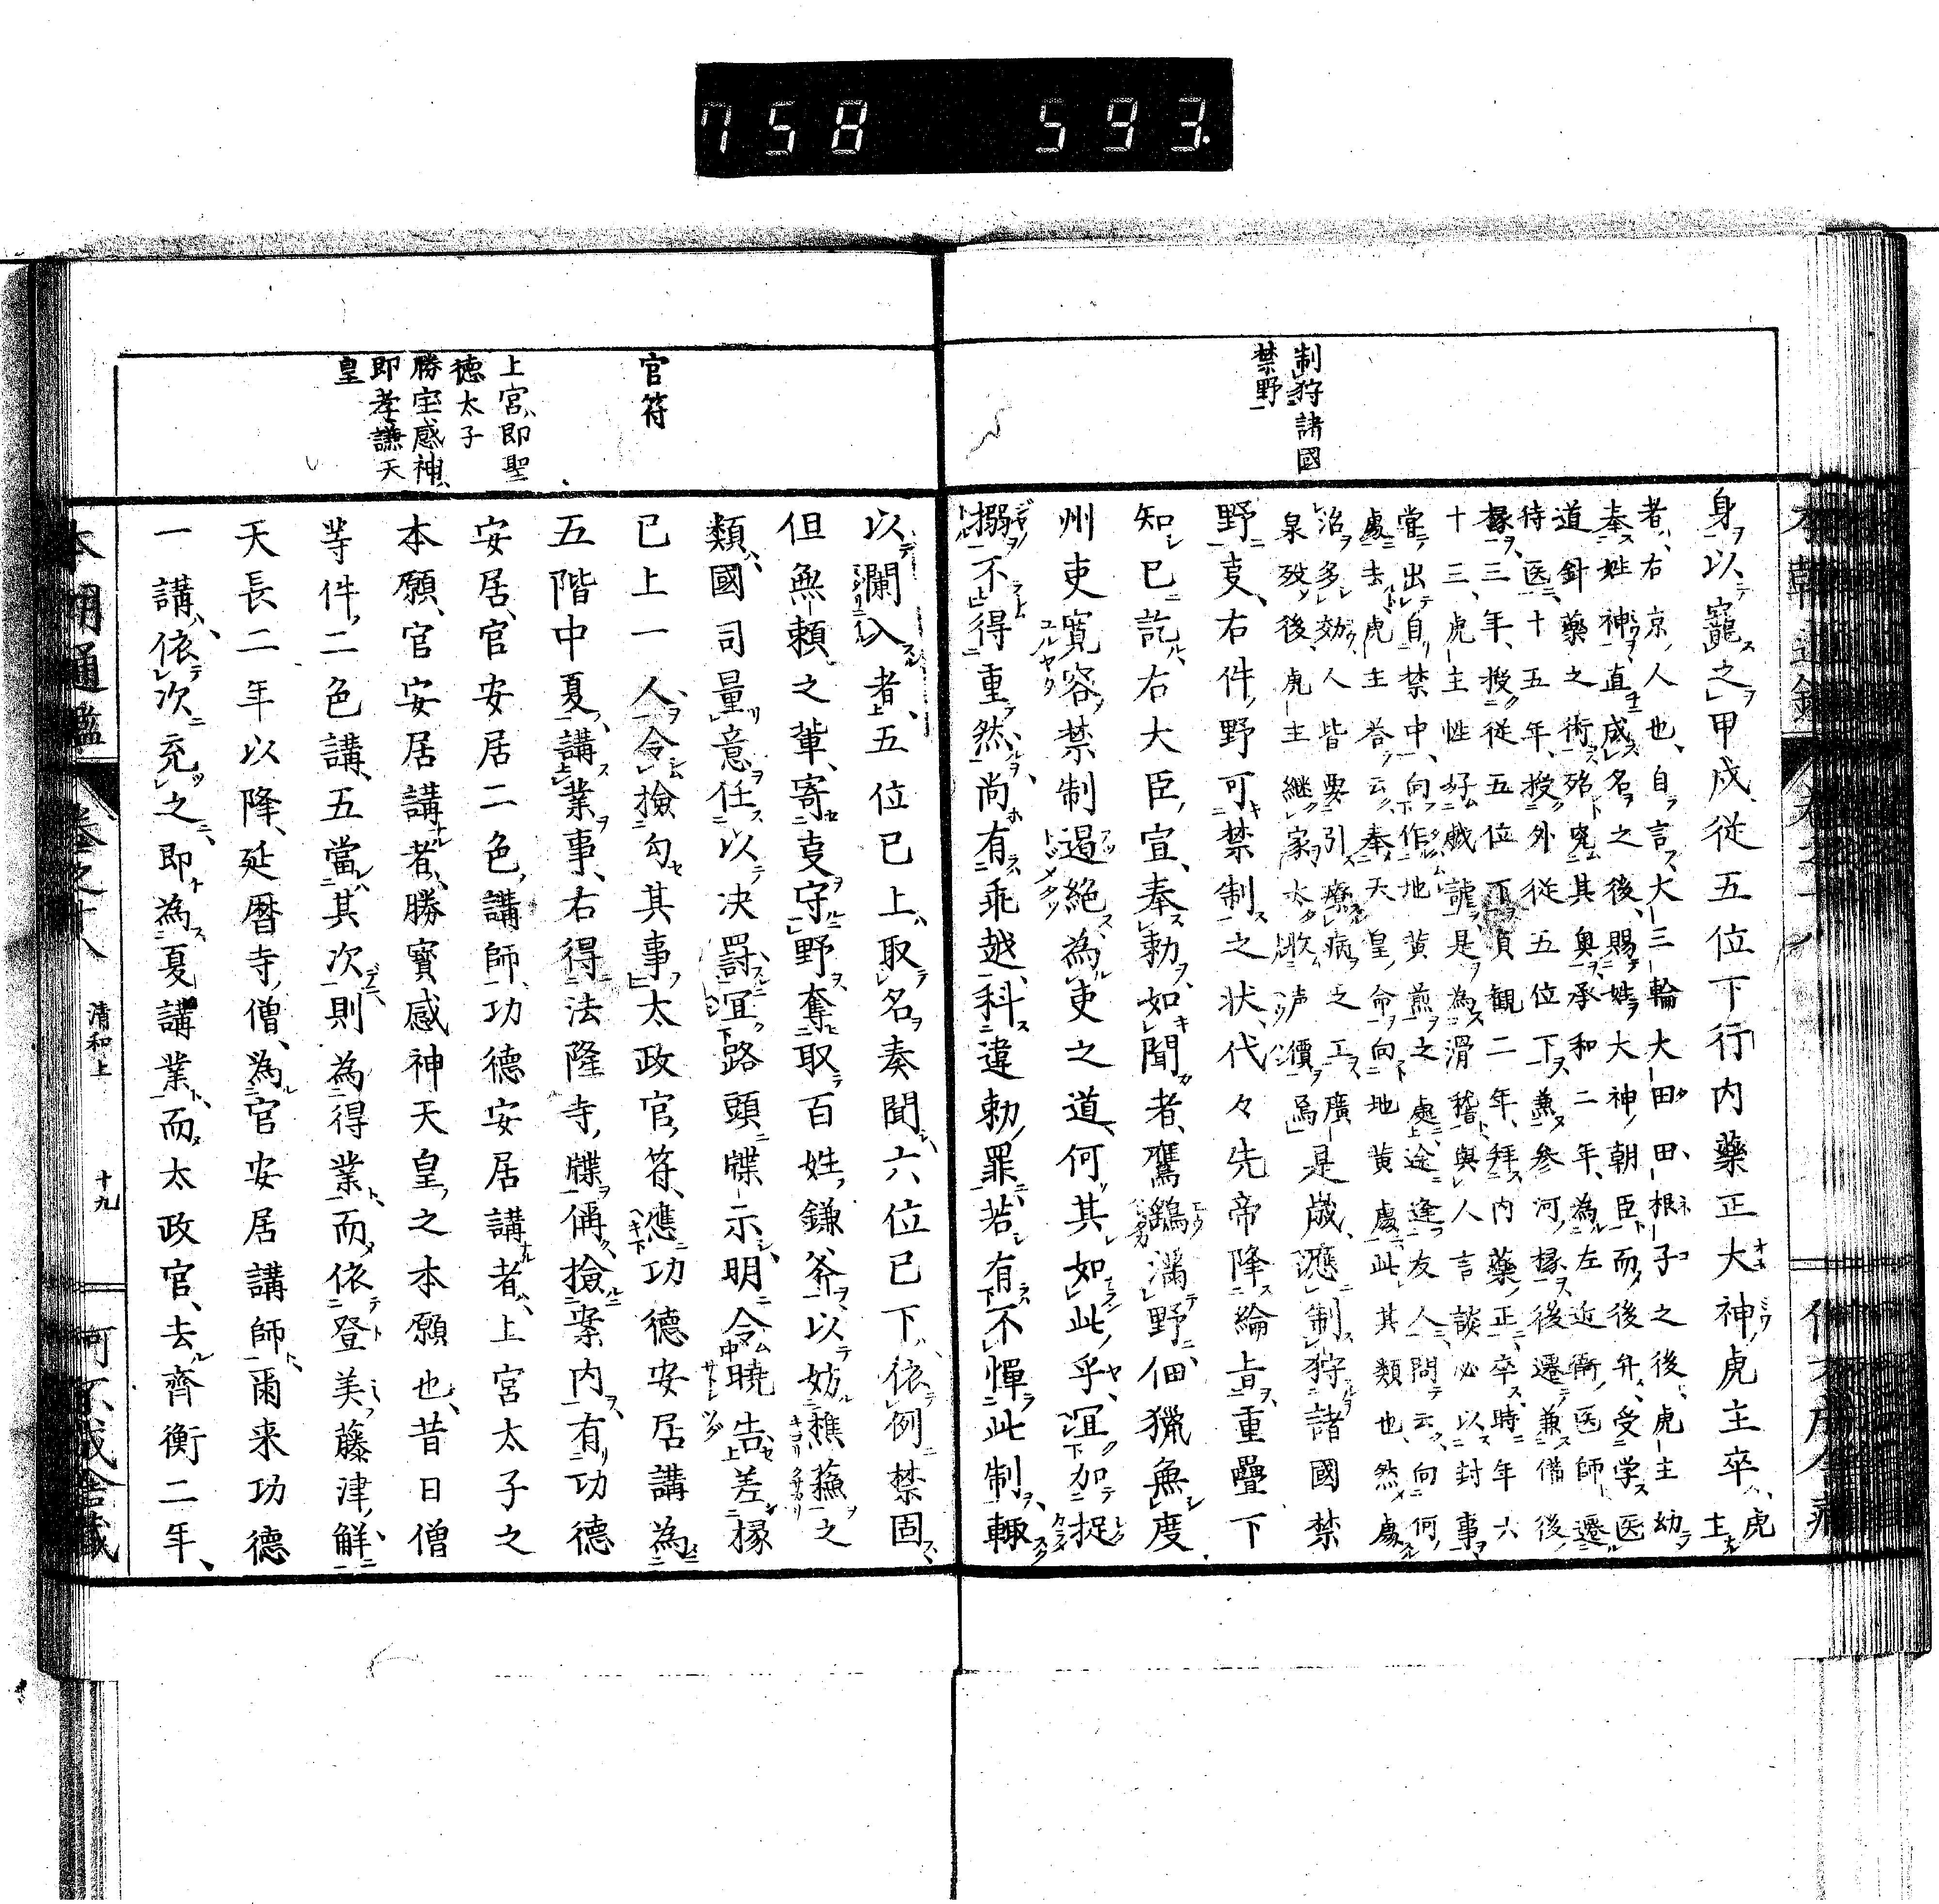 758 593.
制狩諸國
禁野
身以寵之甲戌従五位下行内藥正大神虎主卒虎主
者右京人也自言大三輪大田田根子之後虎主幼
奉姓神直成名之後賜姓大神朝臣而後弁受学医
道針藥之術殆究其奥承和二年為左近衛医師遷
侍医十五年授外従五位下兼参河掾後遷兼備後
掾三年授従五位下貞観二年拜内藥正卒時年六
十三虎主性好戲謔是為滑稽與人言談必以封事
當出自禁中向作地黄煎之處途逢友人問云向何
處去虎主答云奉天皇命向地黄處此其類也然處
治多効人皆要引療病之工廣
泉歿後虎主継家氷敗声價焉是歳應制狩諸國禁
野叓右件野可禁制之状代々先帝降綸旨重疊下
知已訖右大臣宣奉勅如聞者鷹鷂滿野佃獵無度
州吏寛容禁制遏絶為吏之道何其如此乎宜加捉
搦不得重然尚有乖越科違勅罪若有不憚此制輙
官符
上宮即聖
徳太子
勝宝感神
即孝謙天
皇
以瀾入者五位已上取名奏聞六位已下依例禁固
但無頼之輩寄叓守野奪取百姓鎌斧以妨樵蘓之
類國司量意任以决罰宜路頭牒示明令曉告差掾
已上一人令撿勾其事太政官符應功德安居講為
五階中夏講業事右得法隆寺牒偁撿案内有功德
安居官安居二色講師功德安居講者上宮太子之
本願官安居講者勝寳感神天皇之本願也昔日僧
等件二色講五當其次則為得業而依登美藤津觧
天長二年以降延暦寺僧為官安居講師爾来功德
一講依次充之即為夏講業而太政官去齊衡二年
本朝通鑑 卷之十八 清和上 十九